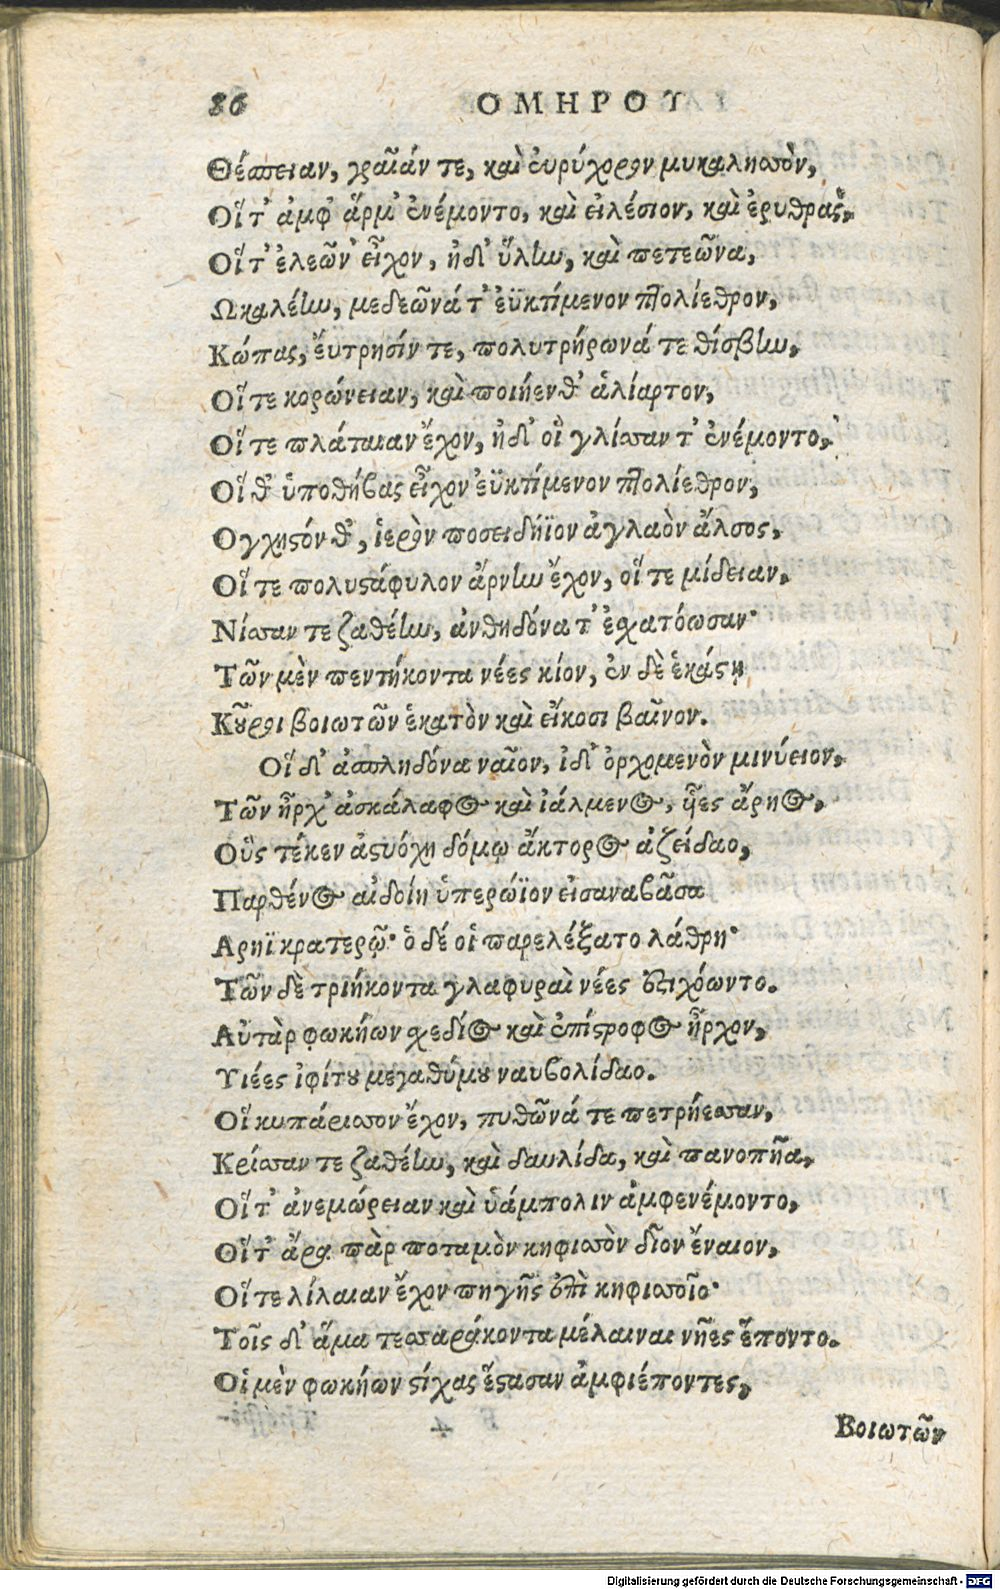 86 ΟΜΗΡΟΥ
Θέσπειαν, γραῖάν τε, καὶ εὐρύχορον μυκαλησσὸν,
Οἵ τ' ἀμφ' ἅρμ' ἐνέμοντο, καὶ εἰλέσιον, καὶ ἐρυθρὰς,
Οἵ τ' ἐλεῶν' εἶχον, ἠδ' ὕλην, καὶ πετεῶνα,
Ωκαλέην, μεδεῶνά τ' ἐϋκτίμενον πτολίεθρον,
Κώπας, ἔυτρησίν τε, πολυτρήρωνά τε θίσβην,
Οἵ τε κορώνειαν, καὶ ποιήενθ' ἁλίαρτον,
Οἵ τε πλάταιαν ἔχον, ἠδ' οἳ γλίσσαντ' ἐνέμοντο,
Οἵ θ' ὑποθήβας εἶχον ἐϋκτίμενον πτολίεθρον,
Ογχηστόν θ', ἱερὸν ποσειδήϊον ἀγλαὸν ἄλσος,
Οἵ τε πολυστάφυλον ἄρνην ἔχον, οἵ τε μίδειαν,
Νίσσαν τε ζαθέην, ἀνθηδόνα τ' ἐσχατόωσαν·
Τῶν μὲν πεντήκοντα νέες κίον, ἐν δὲ ἑκάστῃ
Κοῦροι βοιωτῶν ἑκατὸν καὶ εἴκοσι βαῖνον.
Οἵ δ' ἀσπληδόνα ναῖον, ἰδ' ὀρχομενὸν μινύειον,
Τῶν ἦρχ' ἀσκάλαφος καὶ ἰάλμενος, ἧες ἄρηος,
Οὓς τέκεν ἀστυόχη δόμῳ ἄκτορος ἀζείδαο,
Παρθένος αἰδοίη ὑπερώϊον εἰσαναβᾶσα
Αρηϊ κρατερῷ· ὁ δέ οἱ παρελέξατο λάθρη·
Τῶν δὲ τριήκοντα γλαφυραὶ νέες ἐστιχόωντο.
Αὐτὰρ φωκήων σχεδίος καὶ ἐπίστροφος ἦρχον,
Υιέες ἰφίτου μεγαθύμου ναυβολίδαο.
Οἵ κυπάρισσον ἔχον, πυθῶνά τε πετρήεσσαν,
Κρίσσαν τε ζαθέην, καὶ δαυλίδα, καὶ πανοπῆα,
Οἵ τ' ἀνεμώρειαν καὶ ὑάμπολιν ἀμφενέμοντο,
Οἵ τ' ἄρα πὰρ ποταμὸν κηφισσὸν δῖον ἔναιον,
Οἵ τε λίλαιαν ἔχον πηγῇς ἐπὶ κηφισσοῖο·
Τοῖς δ' ἅμα τεσσαράκοντα μέλαιναι νῆες ἕποντο.
Οἱ μὲν φωκήων στίχας ἕστασαν ἀμφιέποντες,
Βοιωτῶν
Digitalisierung gefördert durch die Deutsche Forschungsgemeinschaft - DFG